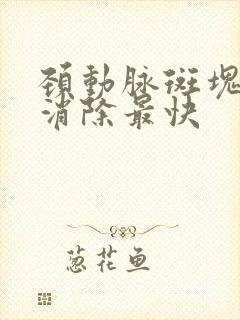 頚動脉斑塊
消除最快
葱花鱼